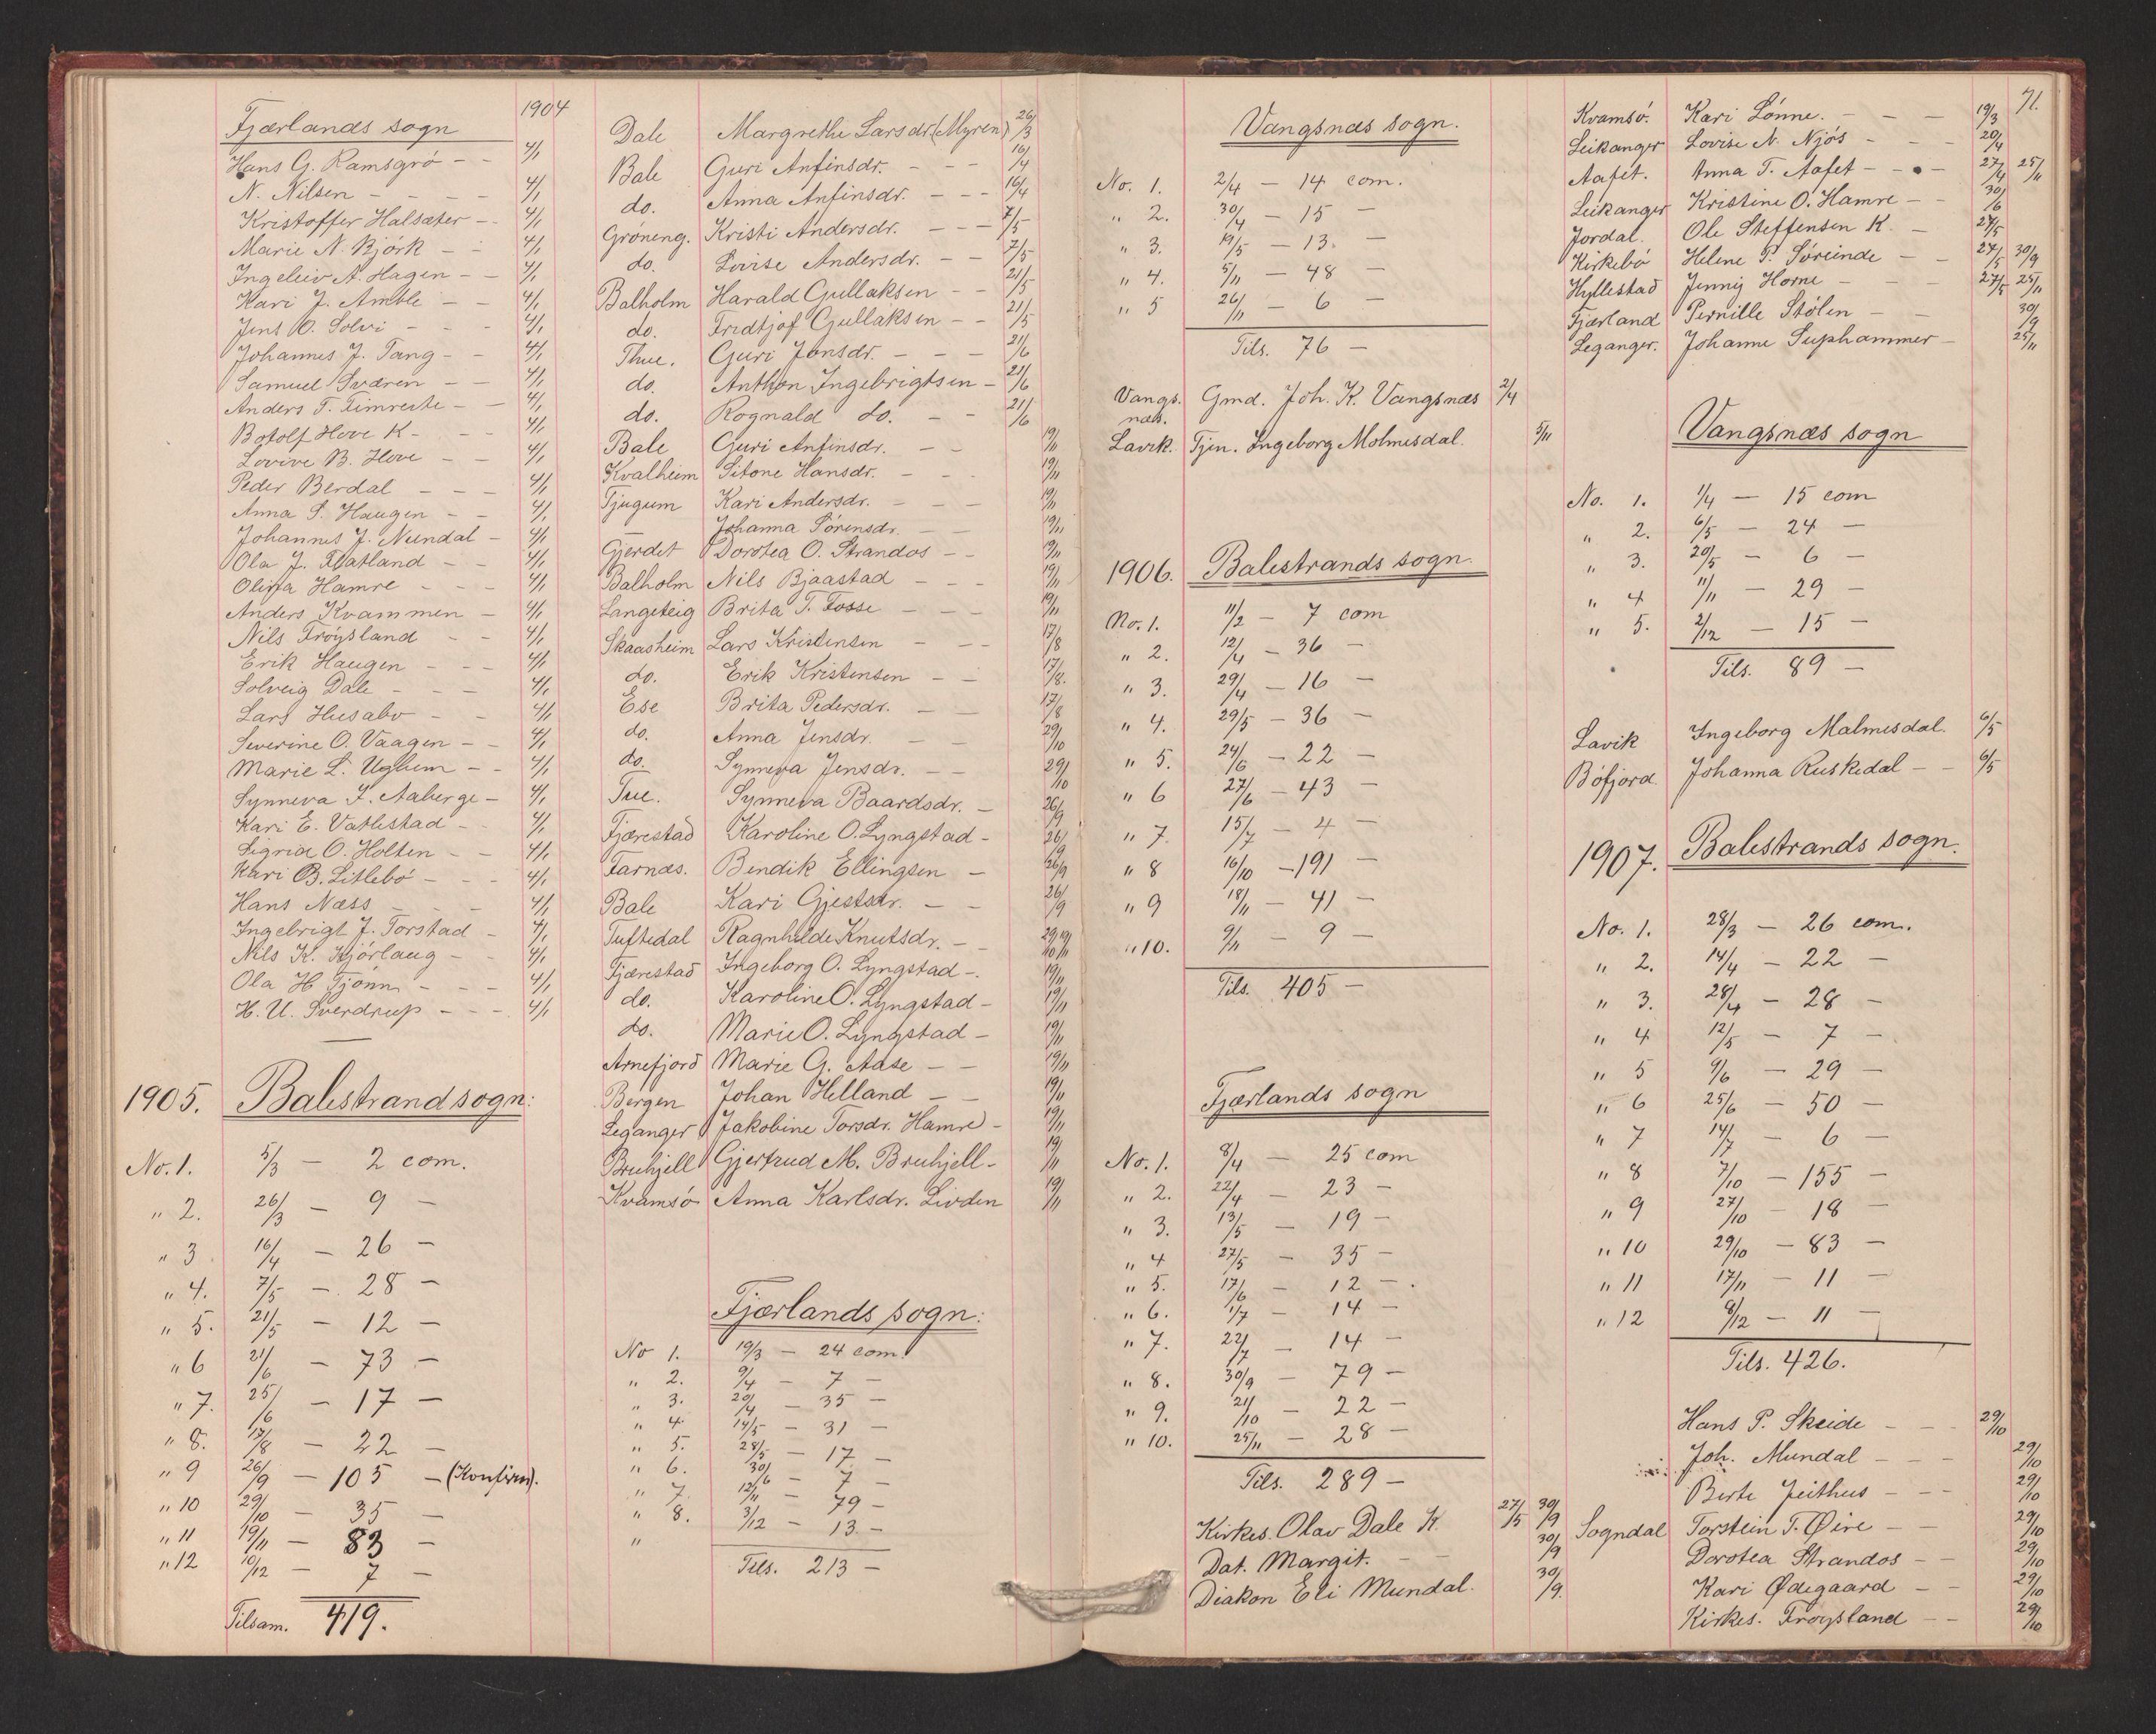 Fjærlands sogn 1904
Hans G. Ramsgrö - - 4/1
N. Nilsen - - - - 4/1
Kristoffer Halsæter - - 4/1
Marie N. Björk - - 4/1
Ingeleiv A. Hagen - - 4/1
Kari J. Amble - - 4/1
Jens O. Solvi - - - 4/1
Johannes J. Tang - - 4/1
Samuel Sværen - - 4/1
Anders T. Fimreite - - 4/1
Botolf Hove K - - - 4/1
Lovive B. Hove - - 4/1
Peder Berdal - - - 4/1
Anna S. Haugen - - 4/1
Johannes J. Nundal - 4/1
Ola J. Flatland - - 4/1
Olina Hamre - - - 4/1
Anders Kvammen - 4/1
Nils Fröysland - - 4/1
Erik Haugen - - - 4/1
Solveig Dale - - - 4/1
Lars Husabö - - 4/1
Severine O. Vaagen - - 4/1
Marie L. Ughum - - 4/1
Synneva I. Aaberge - 4/1
Kari E. Vatlestad - - 4/1
Sigrid O. Holten - - 4/1
Kari B. Litlebö - - - 4/1
Hans Næss - - - 4/1
Ingebrigt J. Torstad - 4/1
Nils K. Kjörlaug - - 4/1
Ola H Tjönn - - - 4/1
H. U. Sverdrup - - - 4/1
1905. Balestrand sogn:
No. 1. 5/3 - 2 com.
" 2. 26/3 - 9 -
" 3 16/4 - 26 -
" 4. 7/5 - 28 -
" 5. 21/5 - 12 -
" 6 21/6 - 73 -
" 7. 25/6 - 17 -
" 8. 17/8 - 22 -
" 9 26/9 - 105 - (Konfirm).
" 10 29/10 - 35 -
" 11 19/11 - 83 -
" 12 10/12 - 7 -
Tilsam. 419.
Dale Margrethe Larsdr. (Myren) 26/3
Bale Guri Anfinsdr. - - - 16/4
do. Anna Anfinsdr. - - - 16/4
Gröneng. Kristi Andersdr. - - - 7/5
do. Lovise Andersdr. - - 7/5
Balholm Harald Gullaksen - - 21/5
do. Fridtjof Gullaksen - - 21/5
Thue. Guri Jonsdr. - - - 21/6
do. Anthon Ingebrigtsen - 21/6
do. Rognald do. - - 21/6
Bale Guri Anfinsdr. - - 19/11
Kvalheim Sitone Hansdr. - - - 19/11
Tjugum Kari Andersdr. - - - 19/11
Johanna Sörensdr. - - 19/11
Gjerdet Dorotea O. Strandos - - 19/11
Balholm Nils Bjaastad - - - 19/11
Langeteig Brita T. Fosse - - - 19/11
Skaasheim Lars Kristensen - - - 17/8
do. Erik Kristensen - - 17/8.
Ese Brita Pedersdr. - - 17/8
do. Anna Jensdr. - - 29/10
do. Synneva Jensdr. - - 29/10
Tue. Synneva Baardsdr. - 26/9
Fjærestad Karoline O. Lyngstad - 26/9
Farnæs. Bendik Ellingsen - 26/9
Bale Kari Gjestsdr. - - 26/9
Tuftedal Ragnhilde Knutsdr. - - 29/10 19/11
Fjærestad Ingeborg O. Lyngstad -. 19/11
do. Karoline O. Lyngstad - 19/11
do. Marie O. Lyngstad - 19/11
Arnefjord Marie G. Aase - - 19/11
Bergen Johan Helland - - 19/11
Leganger Jakobine Torsdr. Hamre - 19/11
Bruhjell Gjertrud M. Bruhjell - 19/11
Kvamsö Anna Karlsdr. Lioden 19/11
Fjærlands sogn:
No 1. 19/3 - 24 com.
" 2. 9/4 - 7 -
" 3. 20/4 - 35 -
" 4. 14/5 - 31 -
" 5. 28/5 - 17 -
" 6. 30/6 - 7 -
" 7. 12/11 - 79 -
" 8. 3/12 - 13 -
"
Tils. 213 -
Vangsnæs sogn.
No. 1. 2/4 - 14 com.
" 2. 30/4 - 15 -
" 3. 19/5 - 13. -
" 4. 5/11 - 48 -
" 5 26/11 - 6 -
Tils. 76 -
Vangs. Gmd. Joh. K. Vangsnæs 2/4
næs.
Lavik. Tjen. Ingeborg Molmesdal. 5/11
1906. Balestrands sogn.
No. 1. 11/2 - 7 com
" 2. 12/4 - 36 -
" 3. 29/4 - 16 -
" 4. 29/5 - 36 -
" 5. 24/6 - 22 -
" 6 27/6 - 43 -
" 7. 15/7 - 4 -
" 8 16/10 - 191 -
" 9 18/11 - 41 -
" 10. 9/11 - 9 -
Tils. 405 -
Fjærlands sogn
No. 1. 8/4 - 25 com
" 2. 22/4 - 23 -
" 3. 13/5 - 19 -
" 4 27/5 - 35 -
" 5. 17/6 - 12 -.
" 6. 1/7 - 14 -
" 7. 22/7 - 14 -
" 8. 30/9 - 79 -
" 9. 21/10 - 22 -
" 10. 25/11 - 28 -
Tils. 289 -
Kirkes. Olav Dale K. 27/5 30/9
Dat. Margit. - - 30/9
Diakon Eli Mundal. 30/9.
71.
Kvamsö. Kari Lönne. - - - 19/3
Leikanger Lovise N. Njös - - - 20/4
Aafet. Anna T. Aafet - - - 27/4 25/11
Leikanger Kristine O. Hamre - - 30/6
Jordal. Ole Steffensen K. - 27/5
Kirkebö Helene P. Söreinde - - 27/5 30/9
Hyllestad Jenny Horne - - - 27/5 25/11
Fjærland Pernille Stölen - - 30/9
Leganger. Johanne Suphammer - 25/11
Vangsnæs sogn
No. 1. 1/4 - 15 com
" 2. 6/5 - 24 -
" 3. 20/5 - 6 -
" 4 11/11 - 29 -
" 5. 2/12 - 15 -
Tils. 89 -
Lavik Ingeborg Malmesdal. 6/5
Böfjord Johanna Ruskedal - - 6/5
1907. Balestrands sogn.
No. 1. 28/3 - 26 com.
" 2. 14/4 - 22 -
" 3. 28/4 - 28 -
" 4 12/5 - 7 -
" 5 9/6 - 29 -
" 6 25/6 - 50 -
" 7 14/7 - 6 -
" 8 7/10 - 155 -
" 9 27/10 - 18 -
" 10 29/10 - 83 -
" 11 17/11 - 11 -
" 12 8/12 - 11 -
Tils. 426.
Hans P. Skeide - - 29/10
Joh. Mundal - - - 29/10
Berte Jeithus - - - 29/10
Sogndal Torstein T. Øire - - 29/10
Dorotea Strandos - - 29/10
Kari Ødegaard - - 29/10
Kirkes. Fröysland - - 29/10